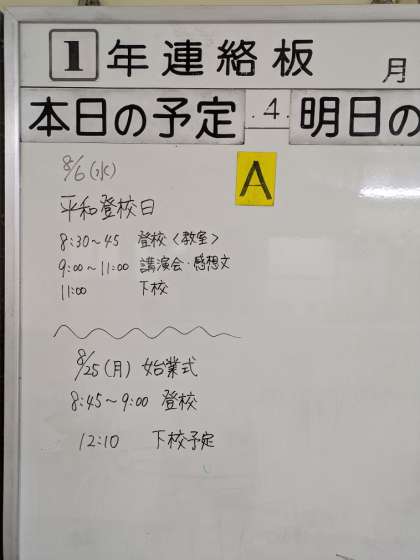 1年連絡板
月
本日の予定 .4. 明日の
A
8/6(水)
平和登校日
8:30~45 登校〈教室〉
9:00~11:00 講演会・感想文
11:00 下校
8/25(月) 始業式
8:45~9:00 登校
12:10 下校予定